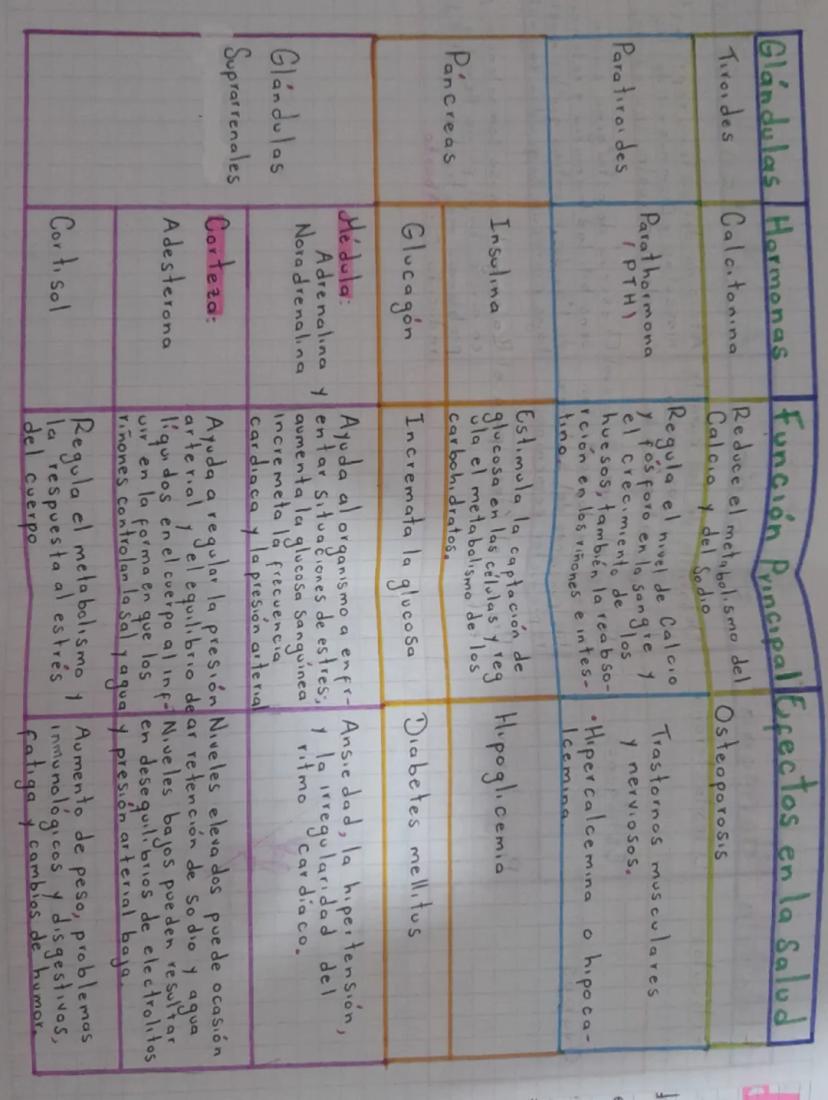 Glándulas
Hormonas
Función Principal
Efectos en la Salud
Tiroides
Calcitonina
Reduce el metabolismo del
Calcio y del Sodio
Osteoporosis
Paratiroides
Parathormona
(PTH)
Regula el nivel de Calcio
y fósforo en la sangre y
el crecimiento de los
huesos, también la reabso-
rción en los riñones e intes-
tino.
Trastornos musculares
y nerviosos.
•Hipercalcemina o hipoca-
lcemina
Páncreas
Insulina
Estimula la captación de
glucosa en las células y reg
ula el metabolismo de los
carbohidratos.
Hipoglicemia
Glucagón
Incremata la glucosa
Diabetes mellitus
Glándulas
Suprarrenales
Médula:
Adrenalina y
Noradrenalina
Ayuda al organismo a enfr-
entar situaciones de estres;
aumenta la glucosa sanguínea
incremeta la frecuencia
cardiaca y la presión arterial
Ansiedad, la hipertensión,
y la irregularidad del
ritmo cardíaco.
Corteza:
Adesterona
Ayuda a regular la presión
arterial y el equilibrio de
líquidos en el cuerpo al inf-
uir en la forma en que los
riñones controlan la sal y agua
Niveles elevados puede ocasión
ar retención de sodio y agua
Niveles bajos pueden resultar
en desequilibrios de electrolitos
y presión arterial baja.
Cortisol
Regula el metabolismo y
la respuesta al estrés
del cuerpo
Aumento de peso, problemas
inmunológicos y disgestivos,
fatiga y cambios de humor.